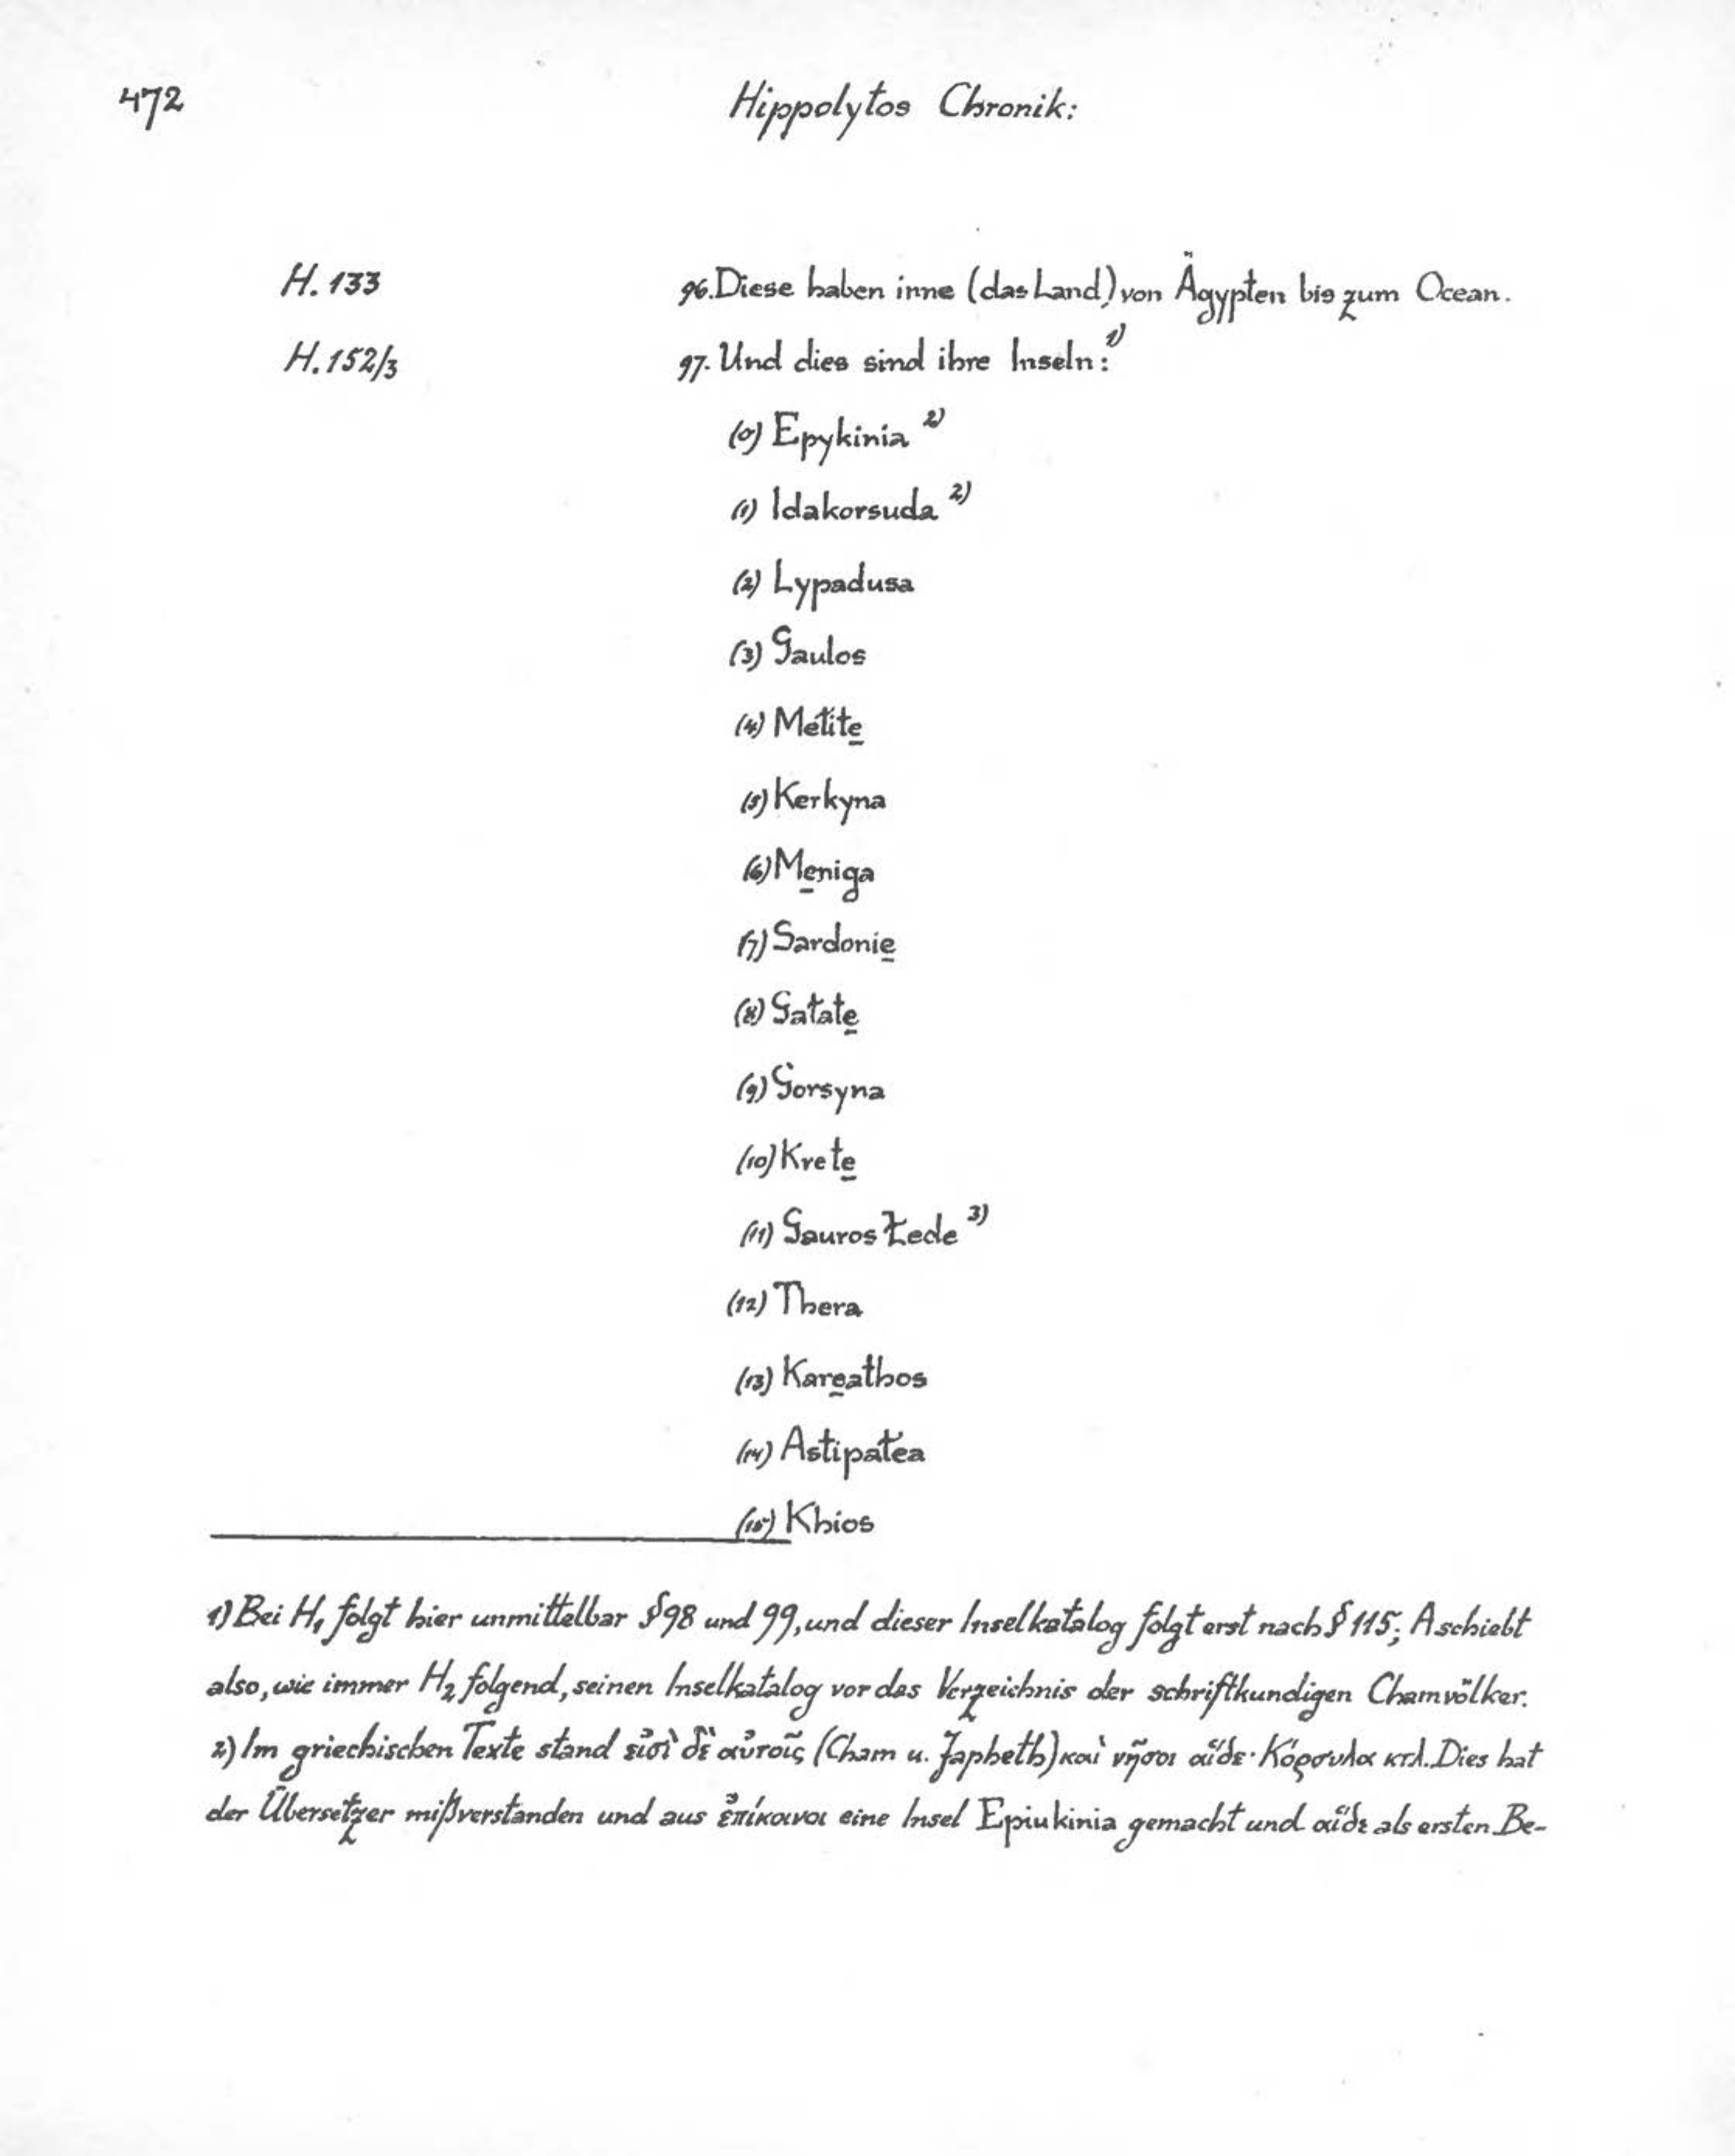 472 Hippolytos Chronik:
H. 133 96. Diese haben inne (das Land) von Ägypten bis zum Ocean.
H. 152/3 97. Und dies sind ihre Inseln: 1)
(0) Epykinia 2)
(1) Idakorsuda 2)
(2) Lypadusa
(3) Gaulos
(4) Mełite̱
(5) Kerkyna
(6) Me̱niga
(7) Sardonie̱
(8) Gałate̱
(9) Gorsyna
(10) Krete̱
(11) Gauros Łede 3)
(12) Thera
(13) Kare̱athos
(14) Astipałea
(15) Khios
1) Bei H₁ folgt hier unmittelbar § 98 und 99, und dieser Inselkatalog folgt erst nach § 115; A schiebt
also, wie immer H₂ folgend, seinen Inselkatalog vor das Verzeichnis der schriftkundigen Chamvölker.
2) Im griechischen Texte stand εἰσὶ δὲ αὐτοῖς (Cham u. Japheth) καὶ νῆσοι αἵδε· Κόρσυλα κτλ. Dies hat
der Übersetzer mißverstanden und aus ἐπίκοινοι eine Insel Epiukinia gemacht und αἵδε als ersten Be-